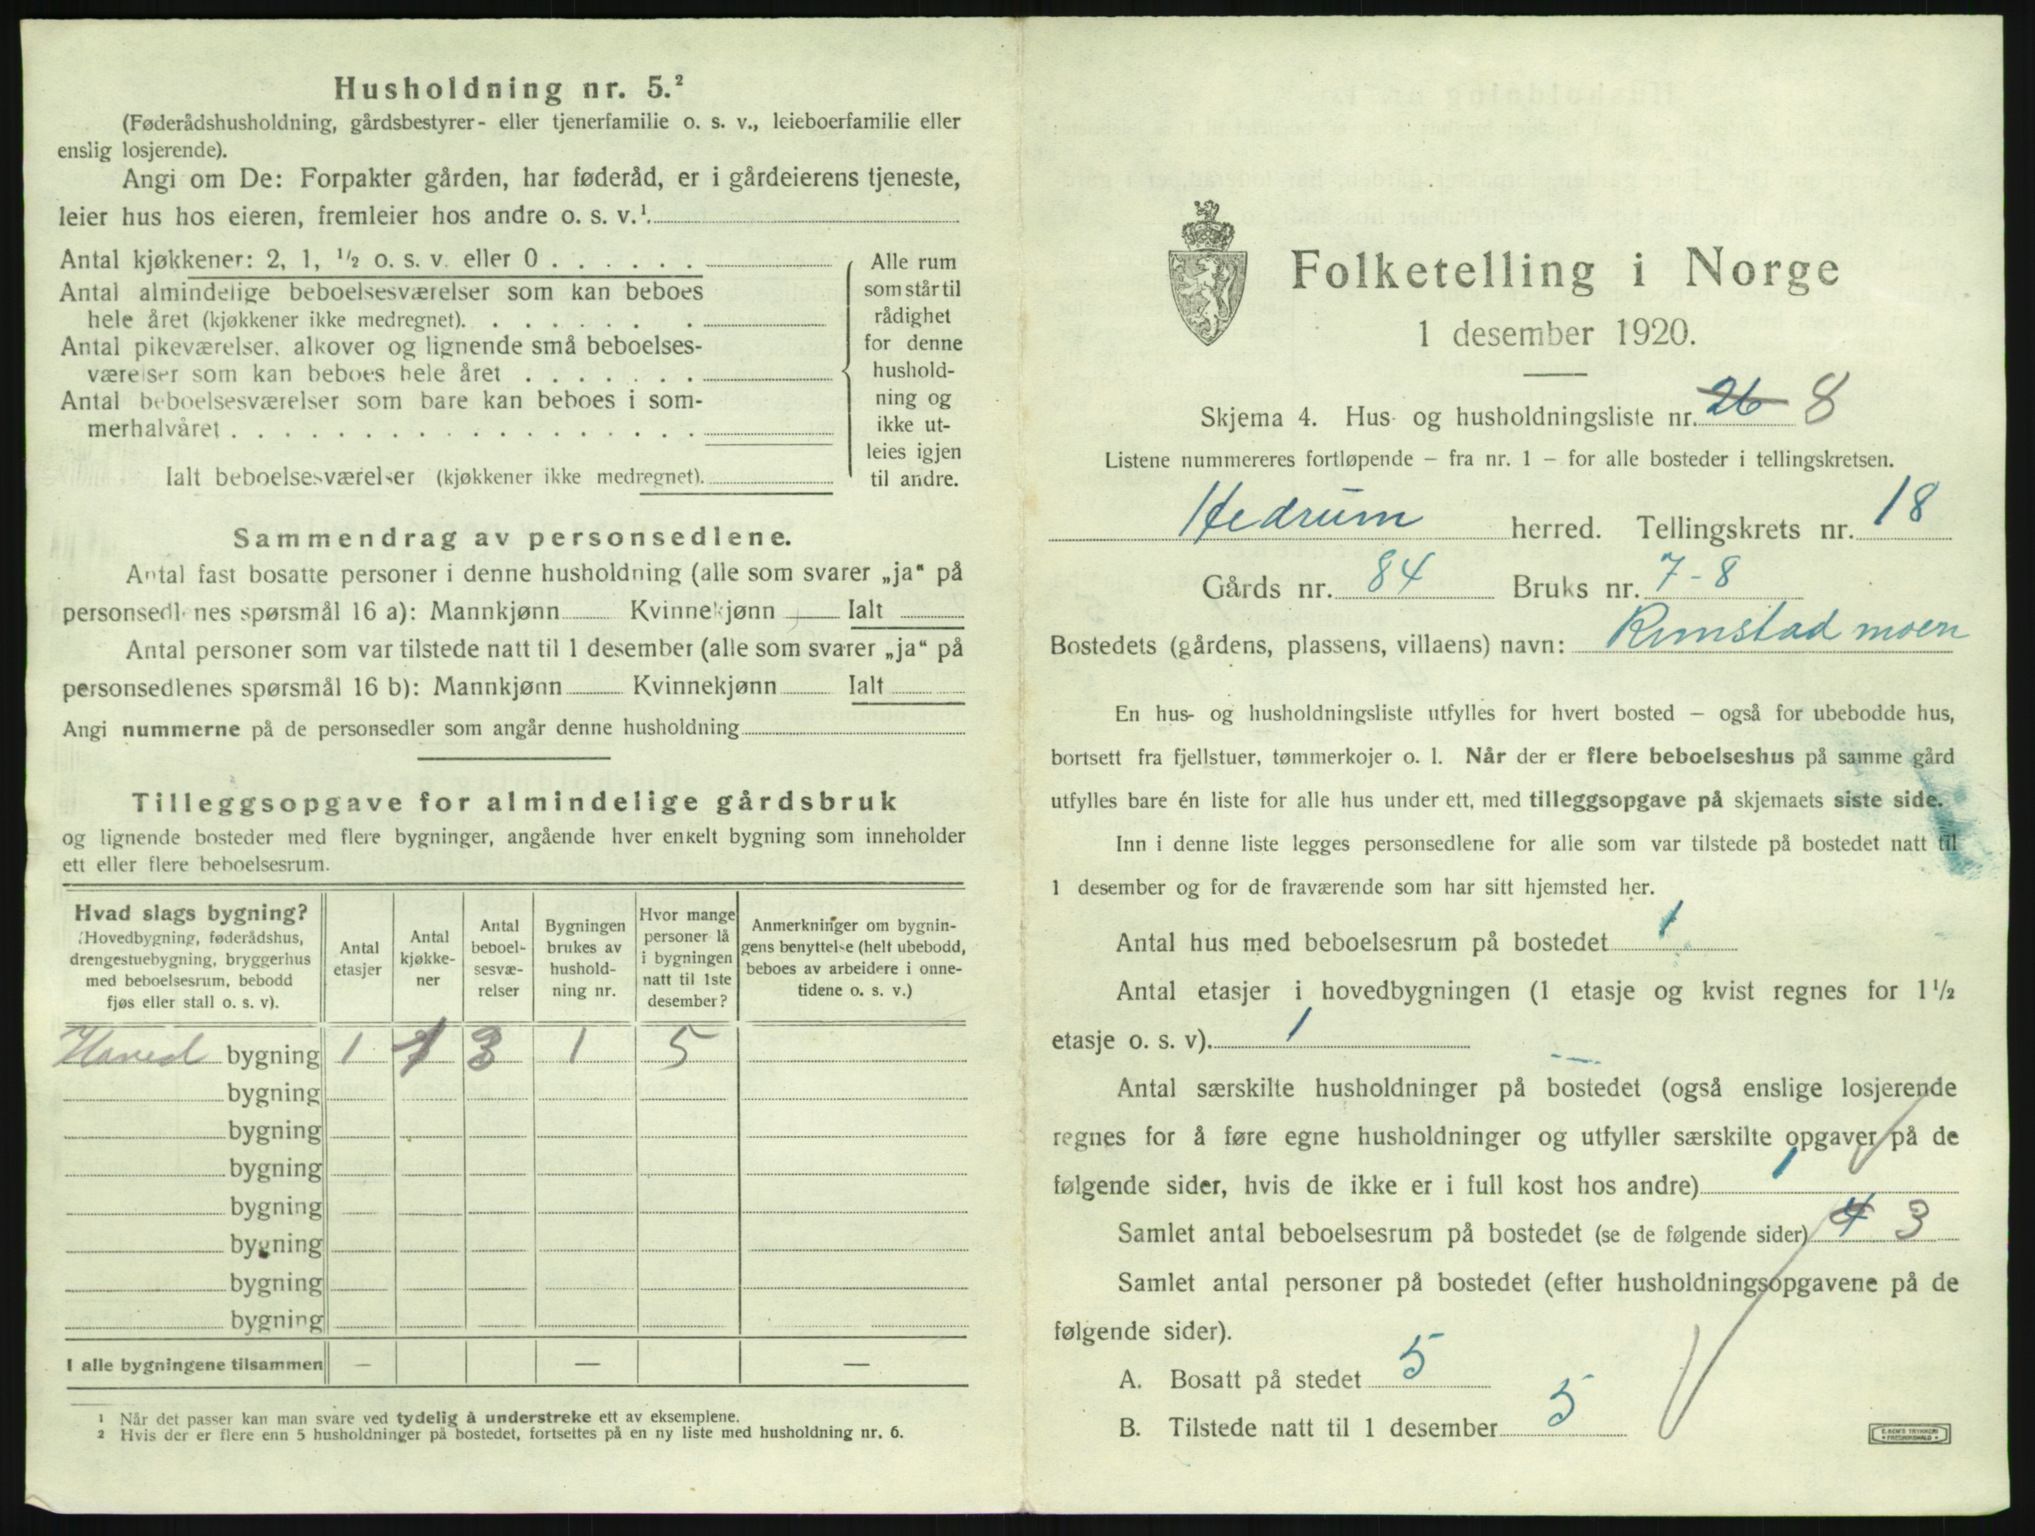 Husholdning nr. 5.²
(Føderådshusholdning, gårdsbestyrer- eller tjenerfamilie o. s. v., leieboerfamilie eller
enslig losjerende).
Angi om De: Forpakter gården, har føderåd, er i gårdeierens tjeneste,
leier hus hos eieren, fremleier hos andre o. s. v.¹
Antal kjøkkener: 2, 1, ½ o. s. v. eller 0
Antal almindelige beboelsesværelser som kan beboes
hele året (kjøkkener ikke medregnet).
Antal pikeværelser, alkover og lignende små beboelses-
værelser som kan beboes hele året
Antal beboelsesværelser som bare kan beboes i som-
merhalvåret
Ialt beboelsesværelser (kjøkkener ikke medregnet).
Alle rum
som står til
rådighet
for denne
hushold-
ning og
ikke ut-
leies igjen
til andre.
Sammendrag av personsedlene.
Antal fast bosatte personer i denne husholdning (alle som svarer „ja“ på
personsedlenes spørsmål 16 a): Mannkjønn Kvinnekjønn Ialt
Antal personer som var tilstede natt til 1 desember (alle som svarer „ja“ på
personsedlenes spørsmål 16 b): Mannkjønn Kvinnekjønn Ialt
Angi nummerne på de personsedler som angår denne husholdning
Tilleggsopgave for almindelige gårdsbruk
og lignende bosteder med flere bygninger, angående hver enkelt bygning som inneholder
ett eller flere beboelsesrum.
Hvad slags bygning?
(Hovedbygning, føderådshus,
drengestuebygning, bryggerhus
med beboelsesrum, bebodd
fjøs eller stall o. s. v).
Antal
etasjer
Antal
kjøkke-
ner
Antal
beboel-
sesvæ-
relser
Bygningen
brukes av
hushold-
ning nr.
Hvor mange
personer lå
i bygningen
natt til 1ste
desember?
Anmerkninger om bygnin-
gens benyttelse (helt ubebodd,
beboes av arbeidere i onne-
tidene o. s. v.)
Hoved bygning 1 1 3 1 5
bygning
bygning
bygning
bygning
bygning
bygning
bygning
I alle bygningene tilsammen — — —
¹ Når det passer kan man svare ved tydelig å understreke ett av eksemplene.
² Hvis der er flere enn 5 husholdninger på bostedet, fortsettes på en ny liste med husholdning nr. 6.
Folketelling i Norge
1 desember 1920.
Skjema 4. Hus- og husholdningsliste nr. 26 8
Listene nummereres fortløpende – fra nr. 1 – for alle bosteder i tellingskretsen.
Hedrum herred. Tellingskrets nr. 18
Gårds nr. 84 Bruks nr. 7-8
Bostedets (gårdens, plassens, villaens) navn: Rimstad moen
En hus- og husholdningsliste utfylles for hvert bosted – også for ubebodde hus,
bortsett fra fjellstuer, tømmerkojer o. l. Når der er flere beboelseshus på samme gård
utfylles bare én liste for alle hus under ett, med tilleggsopgave på skjemaets siste side.
Inn i denne liste legges personsedlene for alle som var tilstede på bostedet natt til
1 desember og for de fraværende som har sitt hjemsted her.
Antal hus med beboelsesrum på bostedet 1
Antal etasjer i hovedbygningen (1 etasje og kvist regnes for 1½
etasje o. s. v). 1
Antal særskilte husholdninger på bostedet (også enslige losjerende
regnes for å føre egne husholdninger og utfyller særskilte opgaver på de
følgende sider, hvis de ikke er i full kost hos andre) 1
Samlet antal beboelsesrum på bostedet (se de følgende sider) 4 3
Samlet antal personer på bostedet (efter husholdningsopgavene på de
følgende sider).
A. Bosatt på stedet 5
B. Tilstede natt til 1 desember 5